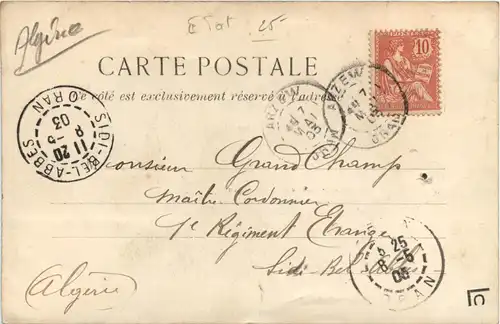 Algérie
Etat 25
CARTE POSTALE
Ce côté est exclusivement réservé à l'adresse
10
ARZEW
ORAN
7
MAI
03
ARZEW
ORAN
7
MAI
03
SIDI-BEL-ABBÈS
ORAN
11 20
8 5
03
Monsieur Grand Champ
Maître Cordonnier
1e Régiment Etranger
Sidi Bel Abbès
Algérie
25
8 -5
03
ORAN